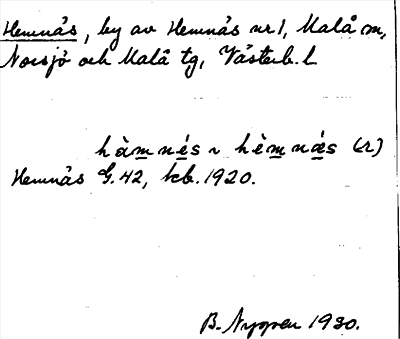 Hemnäs, by av Hemnäs nr 1, Malå sn,
Norsjö och Malå tg, Västerb. l.
hàm̲né̲s ~ hèm̲næ̲s (r)
Hemnäs G. 42, kb. 1920.
B. Nygren 1930.